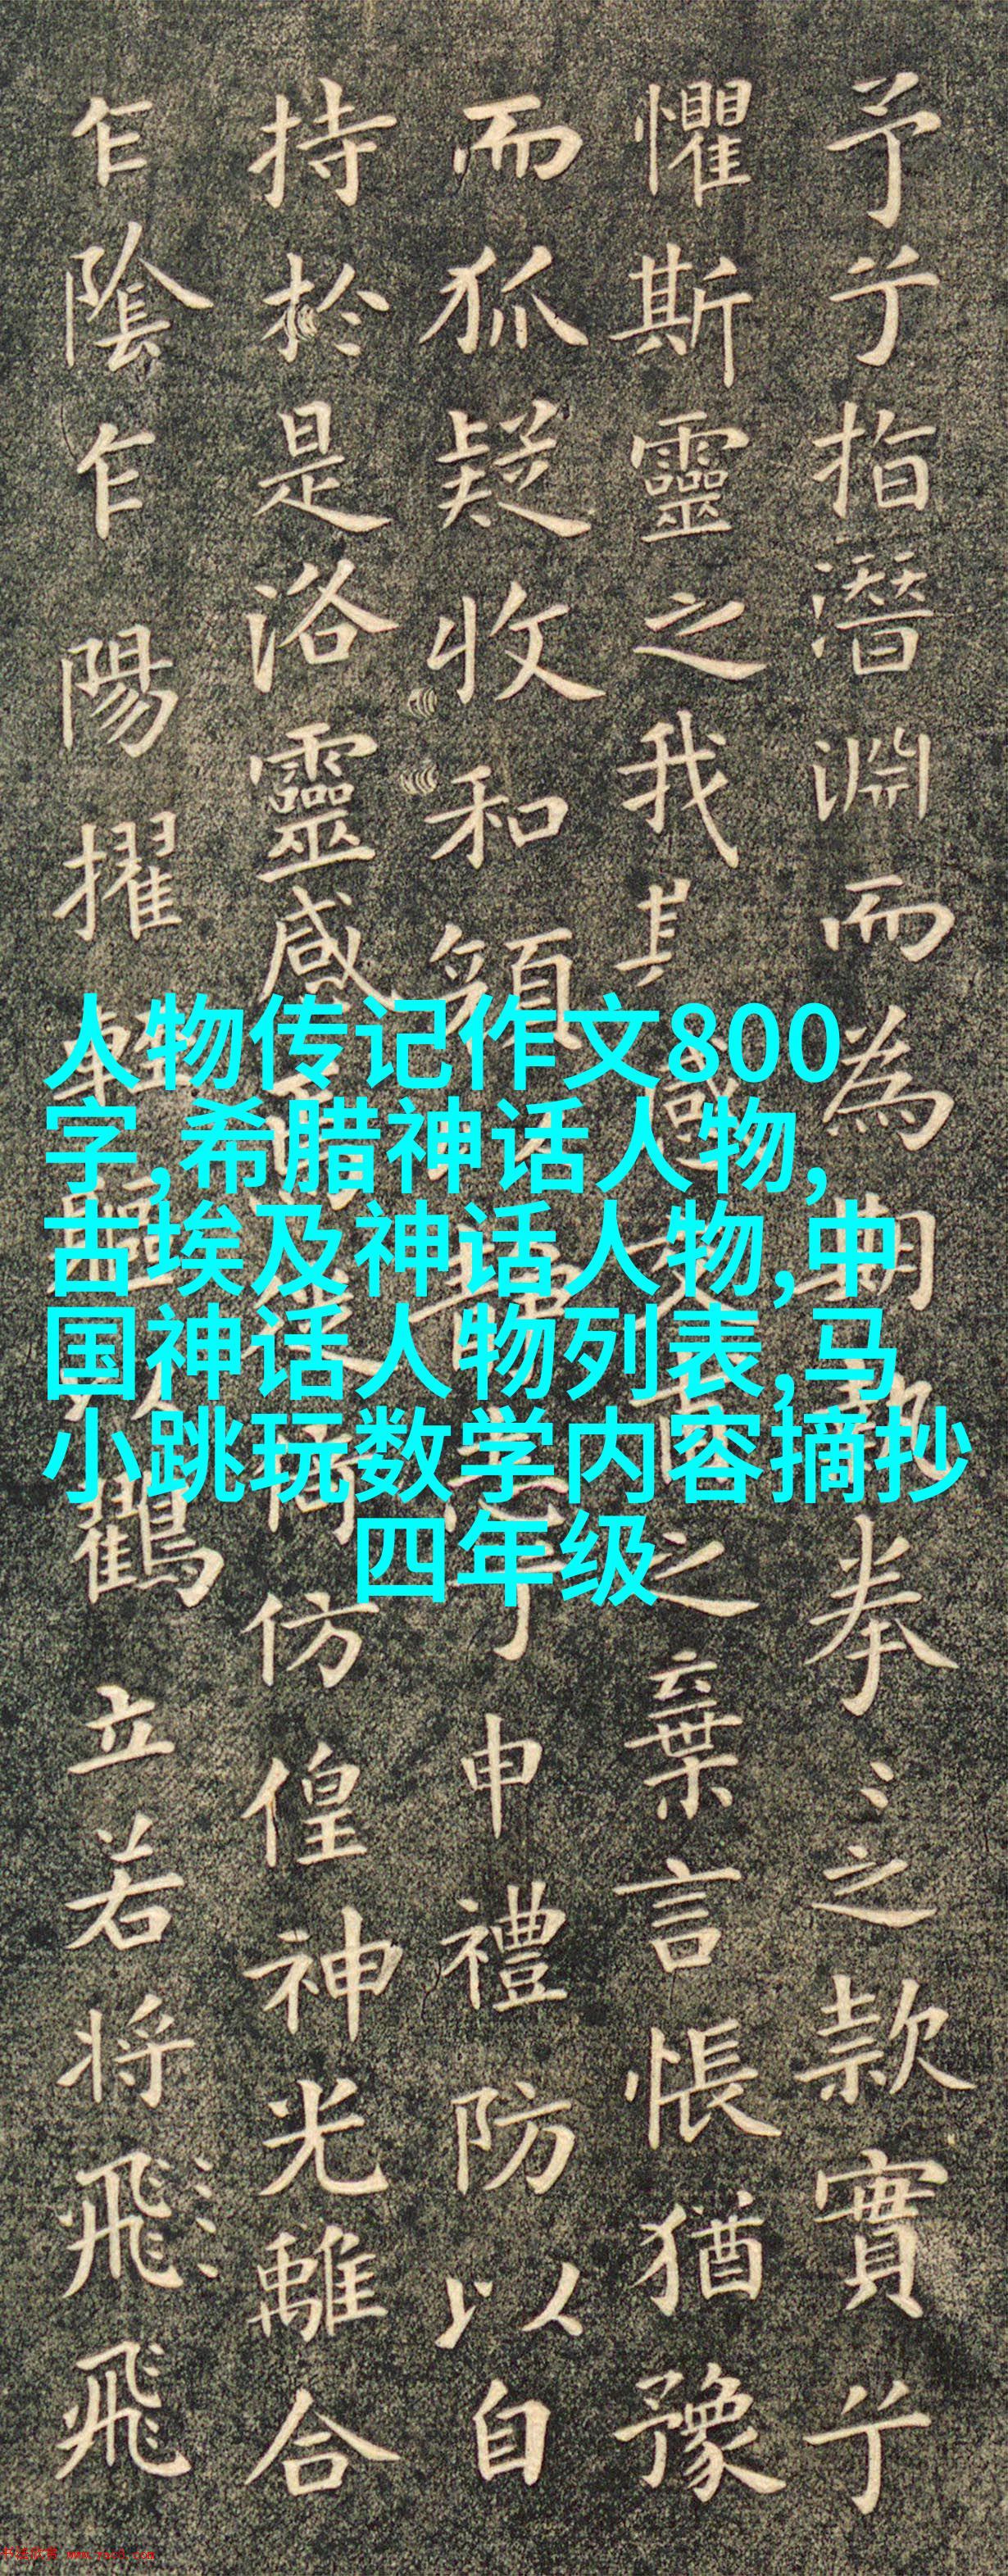 予兮指潛淵而為期執拳〻之款實兮
懼斯靈之我感交甫之棄言悵猶豫
而狐疑收和顏志兮申禮防以自
持於是洛靈感焉徙倚仿偟神光離合
乍陰乍陽擢輕軀以鶴立若將飛飛
人物传记作文800
字,希腊神话人物,
古埃及神话人物,中
国神话人物列表,马
小跳玩数学内容摘抄
四年级